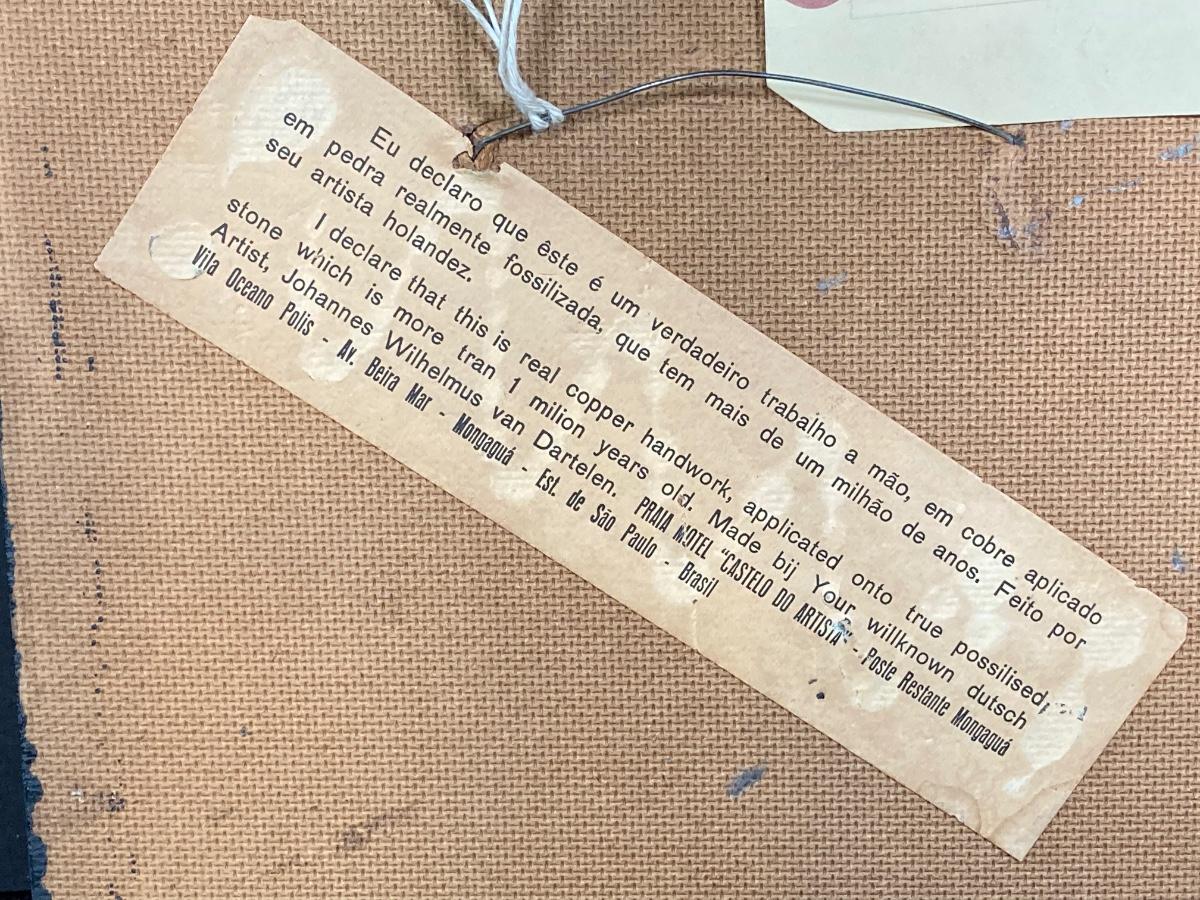 Eu declaro que êste é um verdadeiro trabalho a mão, em cobre aplicado
em pedra realmente fossilizada, que tem mais de um milhão de anos. Feito por
seu artista holandez.
I declare that this is real copper handwork, applicated onto true possilised
stone which is more tran 1 milion years old. Made bij Your willknown dutsch
Artist, Johannes Wilhelmus van Dartelen. PRAIA MOTEL "CASTELO DO ARTISTA" - Poste Restante Mongaguá
Vila Oceano Polis - Av. Beira Mar - Mongaguá - Est. de São Paulo - Brasil